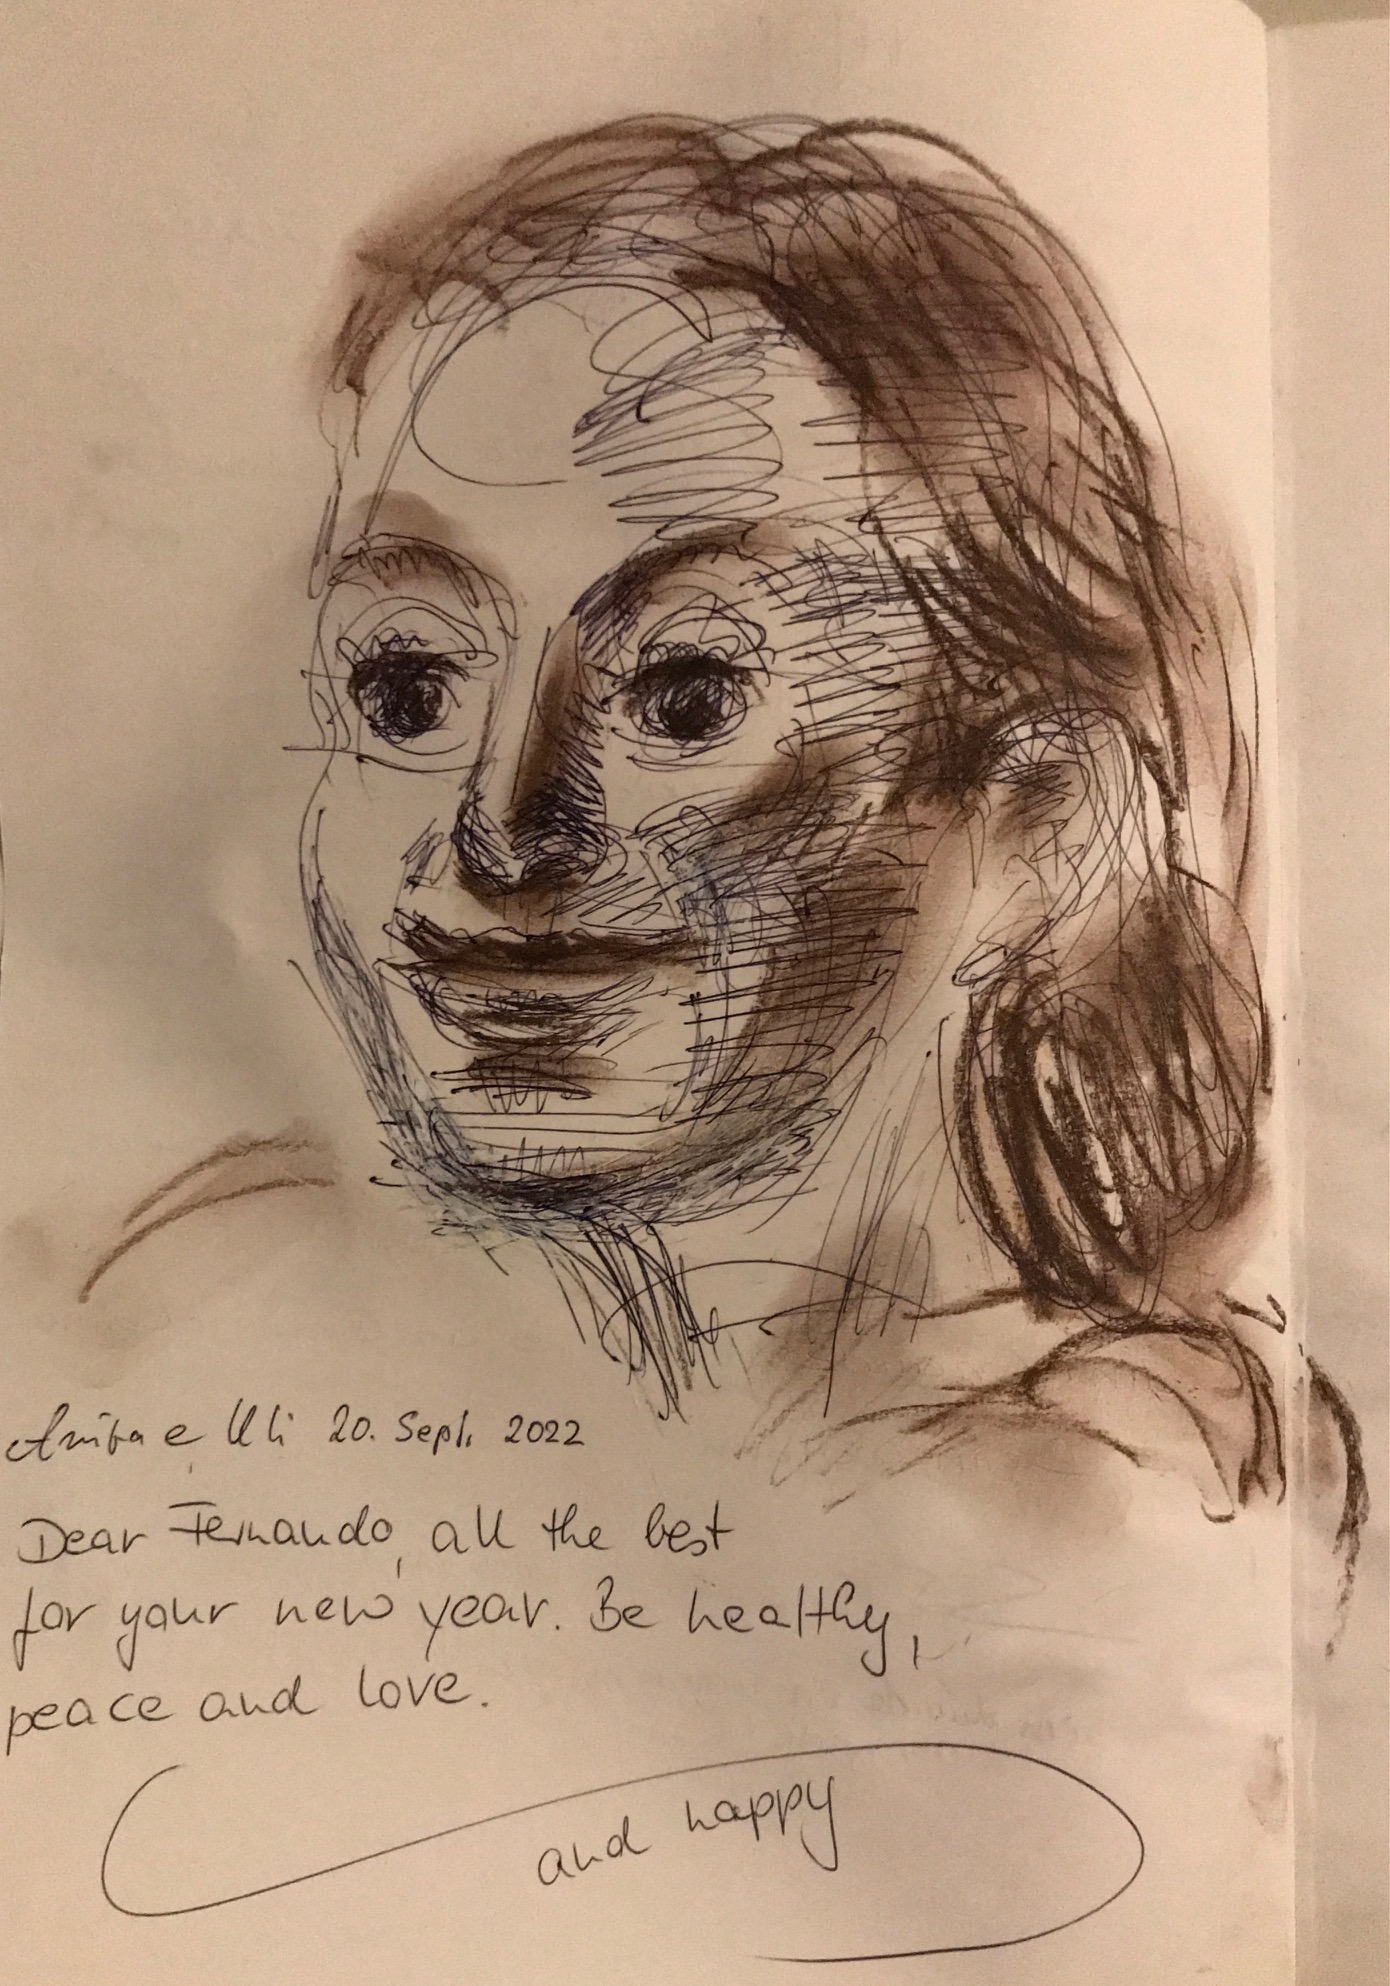 Anita e Uli 20. Sept. 2022
Dear Fernando, all the best
for your new year. Be healthy,
peace and love.
and happy